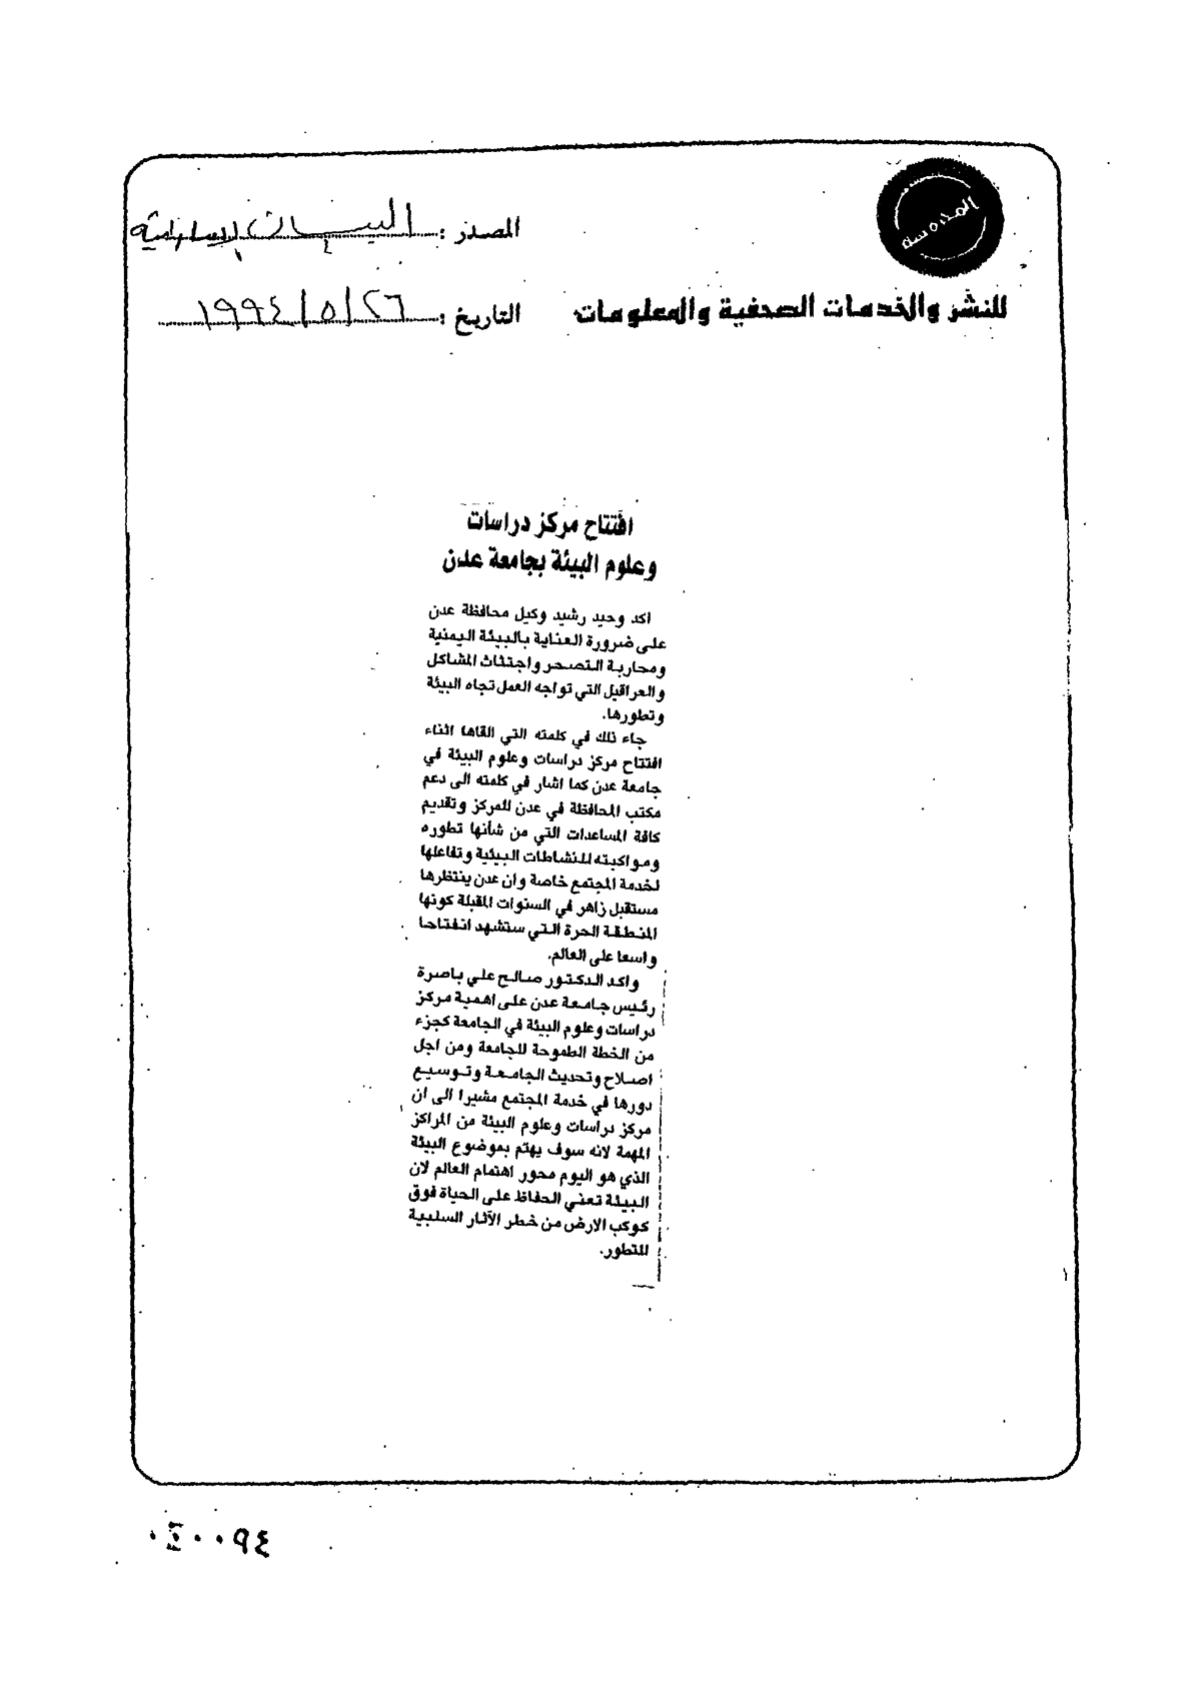 المصدر : البيان الإماراتية
للنشر والخدمات الصحفية والمعلومات
التاريخ : ٢٦/٥/١٩٩٤
افتتاح مركز دراسات
وعلوم البيئة بجامعة عدن
اكد وحيد رشيد وكيل محافظة عدن
على ضرورة العناية بالبيئة اليمنية
ومحاربة التصحر واجتثاث المشاكل
والعراقيل التي تواجه العمل تجاه البيئة
وتطورها.
جاء ذلك في كلمته التي القاها اثناء
افتتاح مركز دراسات وعلوم البيئة في
جامعة عدن كما اشار في كلمته الى دعم
مكتب المحافظة في عدن للمركز وتقديم
كافة المساعدات التي من شأنها تطوره
ومواكبته للنشاطات البيئية وتفاعلها
لخدمة المجتمع خاصة وان عدن ينتظرها
مستقبل زاهر في السنوات المقبلة كونها
المنطقة الحرة التي ستشهد انفتاحا
واسعا على العالم.
واكد الدكتور صالح علي باصرة
رئيس جامعة عدن على اهمية مركز
دراسات وعلوم البيئة في الجامعة كجزء
من الخطة الطموحة للجامعة ومن اجل
اصلاح وتحديث الجامعة وتوسيع
دورها في خدمة المجتمع مشيرا الى ان
مركز دراسات وعلوم البيئة من المراكز
المهمة لانه سوف يهتم بموضوع البيئة
الذي هو اليوم محور اهتمام العالم لان
البيئة تعني الحفاظ على الحياة فوق
كوكب الارض من خطر الآثار السلبية
للتطور.